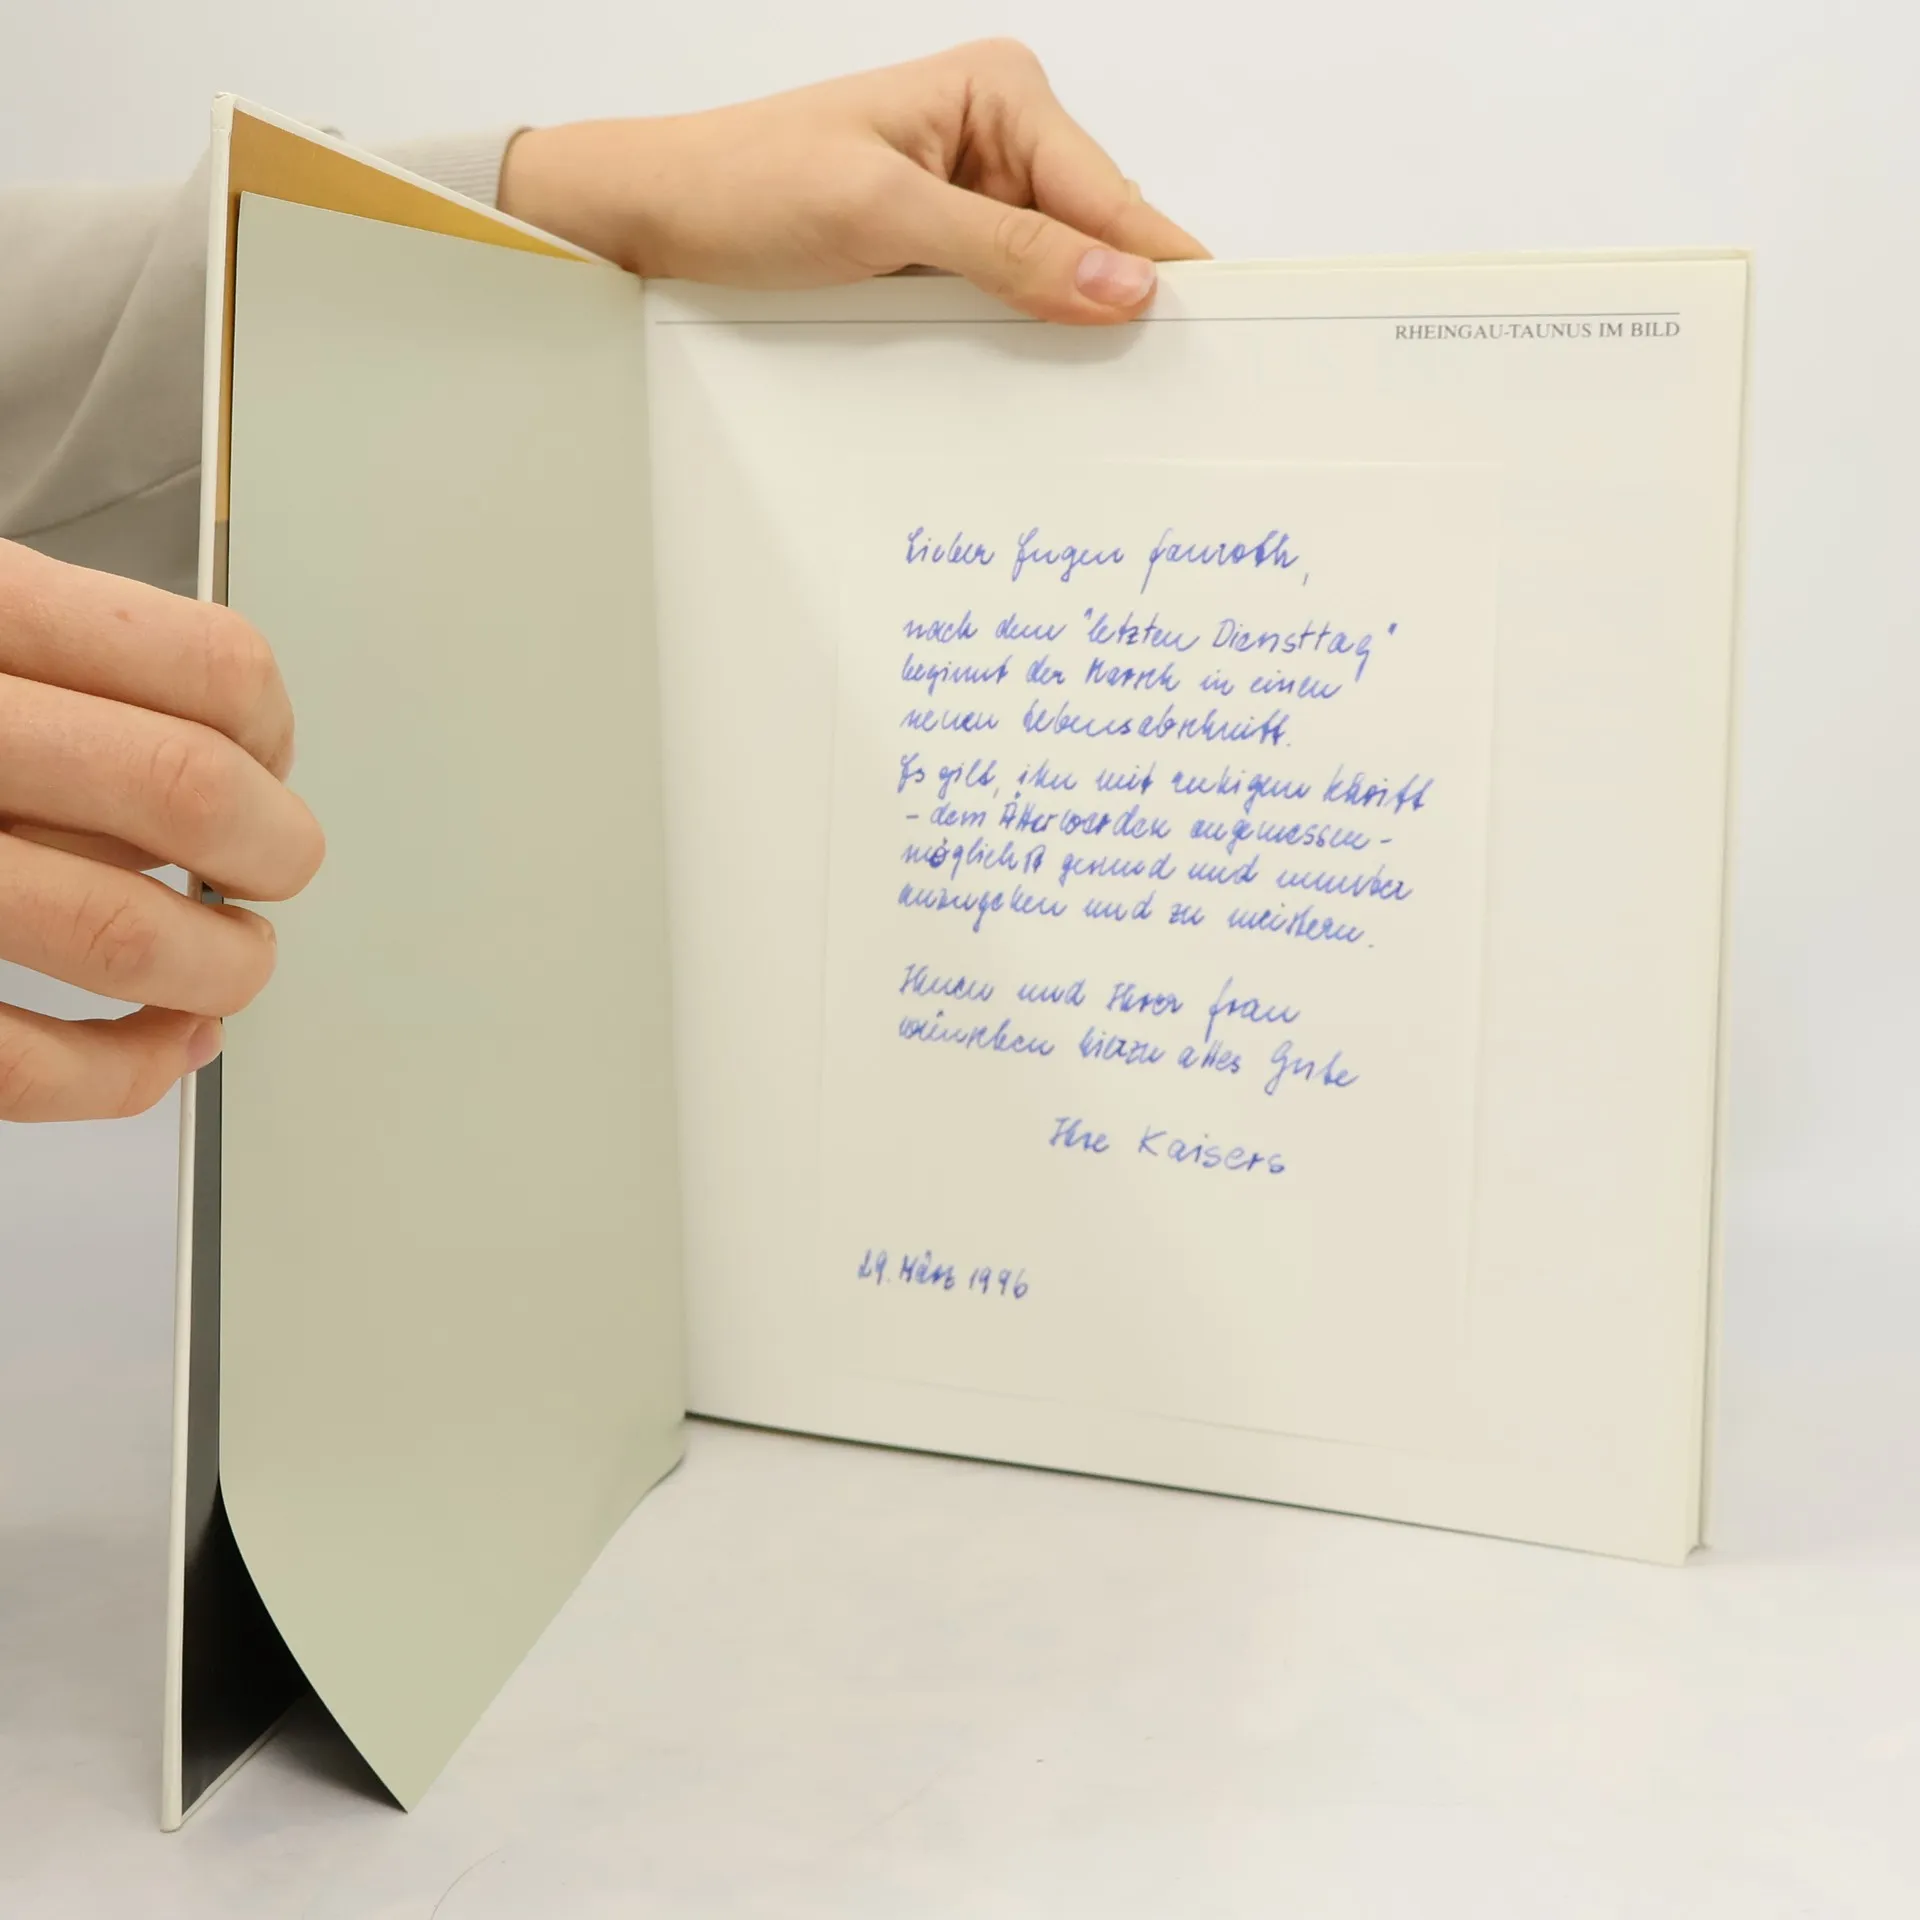 RHEINGAU-TAUNUS IM BILD
Lieber Eugen
nach dem "letzten Diensttag"
beginnt der Marsch in einen
neuen Lebensabschnitt.
Es gilt, ihn mit ruhigem Schritt
- dem Älterwerden angemessen -
möglichst gesund und munter
anzugehen und zu meistern.
Ihnen und Ihrer Frau
wünschen hierzu alles Gute
Ihre Kaisers
29. März 1996